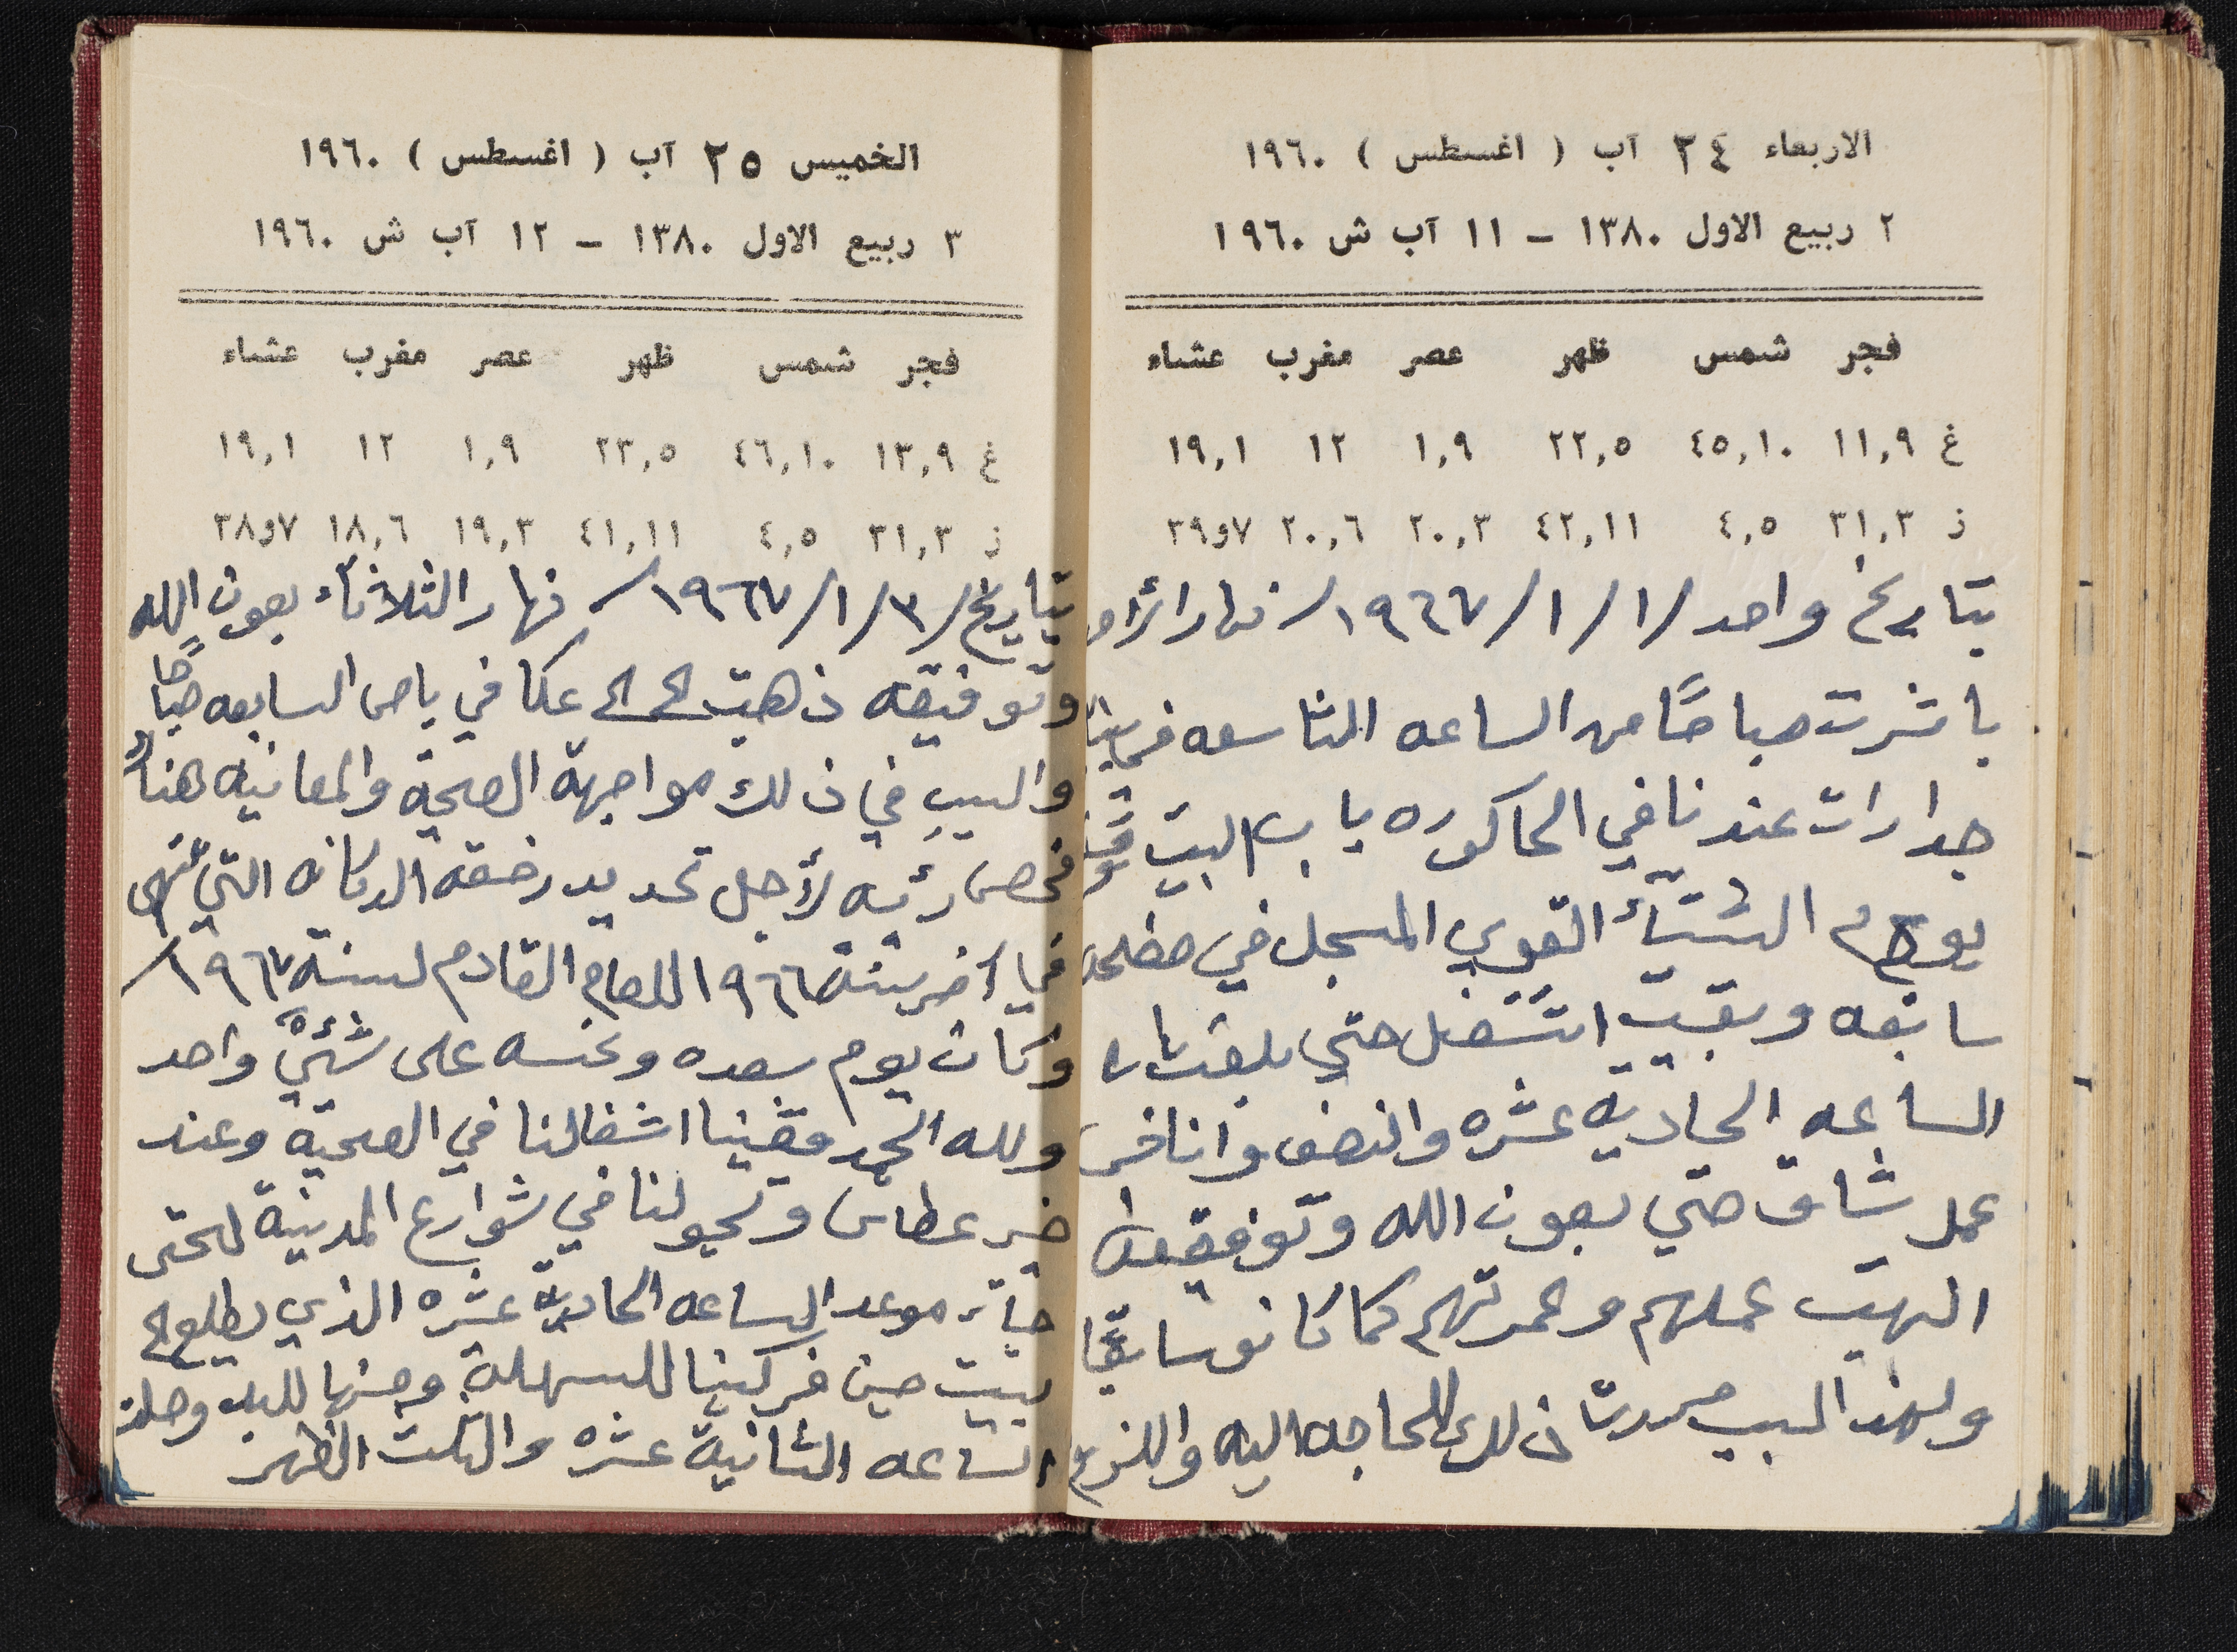 الاربعاء ٢٤ آب ( اغسطس ) ١٩٦٠
٢ ربيع الاول ١٣٨٠ - ١١ آب ش ١٩٦٠
فجر شمس ظهر عصر مغرب عشاء
غ ١١,٩ ٤٥,١٠ ٢٢,٥ ١,٩ ١٢ ١٩,١
ز ٣١,٣ ٤,٥ ٤٢,١١ ٢٠,٣ ٢٠,٦ ٧و٣٩
بتاريخ واحد/١/١/١٩٦٧/ نهار
باشرت صباحًا من الساعه التاسعه في
جدارات عندنا في الحاكوره باب البيت
يوم الشتاء القوي المسجل في صفحه
سابقه وبقيت اشتغل حتى بلغت
الساعه الحاديه عشره والنصف وانا في
عمل شاق حتي بعون الله وتوفيقه
انهيت عملهم وعمرتهم كما كانو سابقًا
ولهذا السبب حررت ذلك للحاجه اليه واللزوم
الخميس ٢٥ آب ( اغسطس ) ١٩٦٠
٣ ربيع الاول ١٣٨٠ - ١٢ آب ش ١٩٦٠
فجر شمس ظهر عصر مغرب عشاء
غ ١٣,٩ ٤٦,١٠ ٢٣,٥ ١,٩ ١٢ ١٩,١
ز ٣١,٣ ٤,٥ ٤١,١١ ١٩,٣ ١٨,٦ ٧و٣٨
بتاريخ/٣/١/١٩٦٧/ نهار الثلاثاء بعون الله
وتوفيقه ذهبت الى عكا في باص السابعه صباحًا
والسبب في ذلك مواجهة الصحية والمعاينه هناك
فحص رئيه لأجل تجديد رخصة الدكانه التي تنتهي
في آخر سنة ١٩٦٦ للعام القادم لسنة ١٩٦٧/
وكان يوم سعده ونحسه على شيئ واحد
ولله الحمد قضينا اشغالنا في الصحية وعند
خير عطاس وتجولنا في شوارع المدينة لحتى
جاء موعد الساعه الحادية عشره الذي يطلع الى
بيت جن فركبنا للسهلة ومنها للبلد وصلت
الساعه الثانية عشره والثلث الظهر